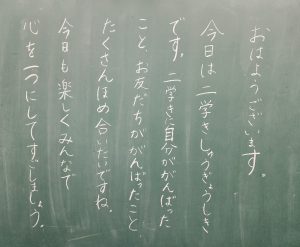 おはようございます。
今日は二学きしゅうぎょうしき
です。二学きに自分ががんばった
こと、お友だちががんばったこと
たくさんほめ合いたいですね。
今日も楽しくみんなで
心を一つにしてすごしましょう。